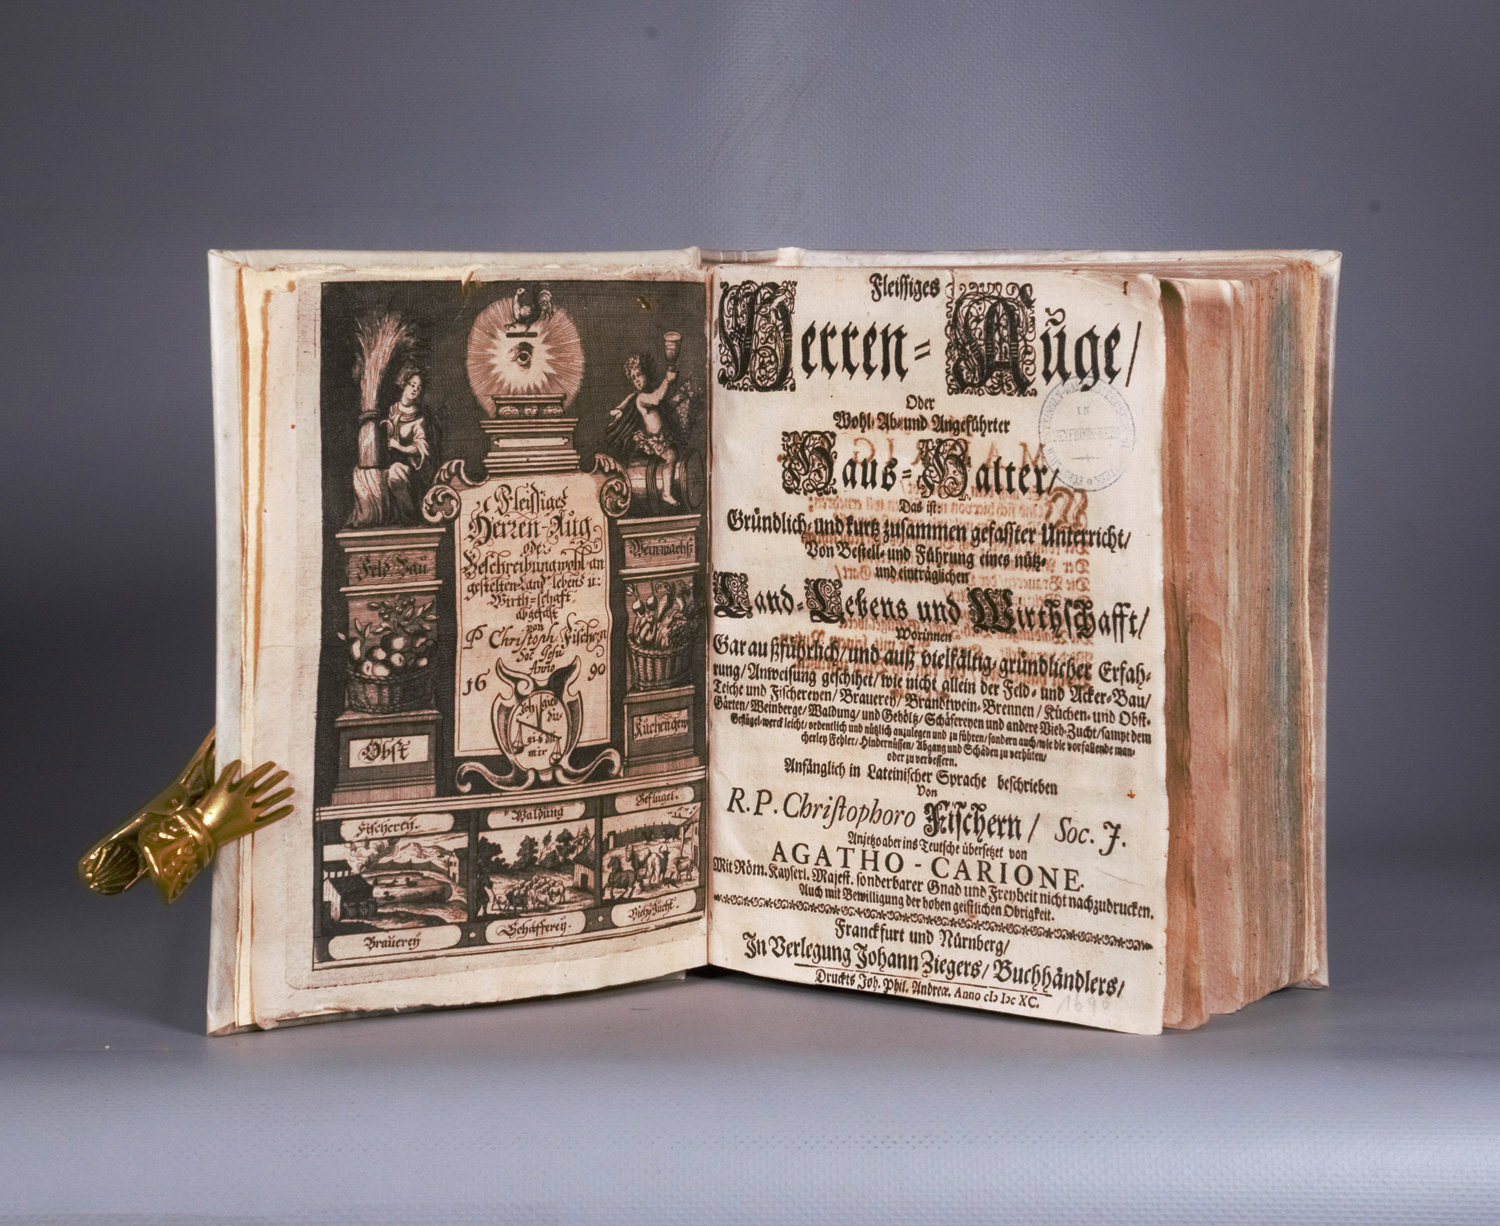 Fleissiges
Herren-Aug
oder
Beschreibung wohl an
gestelten Land lebens u:
Wirth-schaft
abgefast
von
P Christoph Fischern
Soc Jesu
Anno
16 90
Feld Bau
Obst
Weinwachs
Küchengew
Fischerey.
Waldung
Geflügel.
Braüereÿ
Schäffereÿ.
Vieh Zucht.
Fleissiges
Herren-Aŭge/
Oder
Wohl Ab- und Angeführter
Haus-Halter/
Das ist:
Gründlich- und kurtz zusammen gefasster Unterricht/
Von Bestell- und Führung eines nütz-
und einträglichen
Land-Lebens und Wirthschafft/
Worinnen
Gar außführlich/ und auß vielfältig-gründlicher Erfah-
rung/ Anweisung geschihet/ wie nicht allein der Feld- und Acker-Bau/
Teiche und Fischereyen/ Brauerey/ Brandtwein-Brennen/ Küchen- und Obst-
Gärten/ Weinberge/ Waldung/ und Gehöltz/ Schäfereyen und andere Vieh-Zucht/ sampt dem
Geflügel-werck leicht/ ordentlich und nützlich anzulegen und zu führen/ sondern auch/ wie die vorfallende man-
cherley Fehler/ Hindernüssen/ Abgang und Schäden zu verhüten/
oder zu verbessern.
Anfänglich in Lateinischer Sprache beschrieben
Von
R. P. Christophoro Fischern/ Soc. J.
Anjetzo aber ins Teutsche übersetzet von
AGATHO-CARIONE.
Mit Röm. Kayserl. Majest. sonderbarer Gnad und Freyheit nicht nachzudrucken.
Auch mit Bewilligung der hohen geistlichen Obrigkeit.
Franckfurt und Nürnberg/
In Verlegung Johann Ziegers/ Buchhändlers/
Druckts Joh. Phil. Andreæ. Anno cIɔ Iɔc XC.
1690